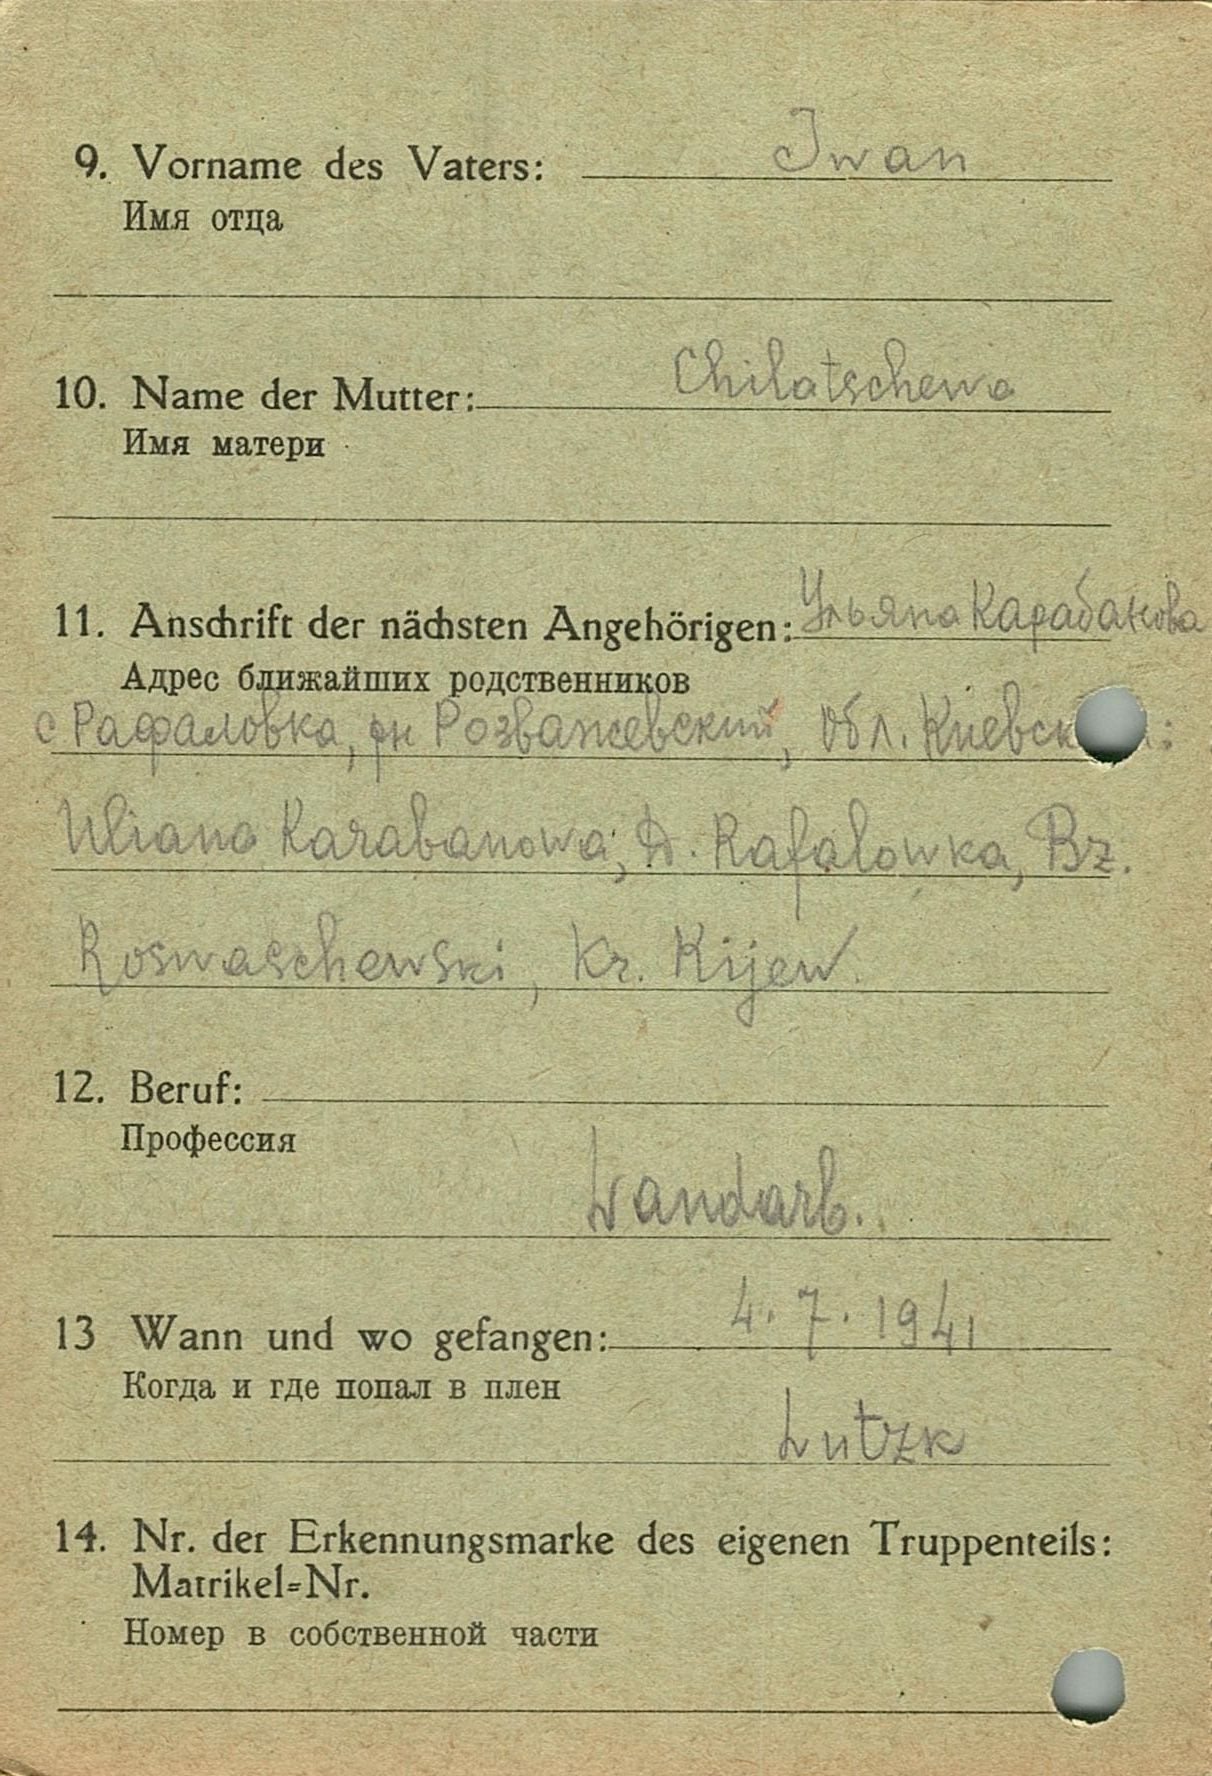 9. Vorname des Vaters: Iwan
Имя отца
10. Name der Mutter: Chilatschewa
Имя матери
11. Anschrift der nächsten Angehörigen: Ульяна Карабанова
Адрес ближайших родственников
с Рафаловка, рн Розважевский, Обл. Киевск:
Uliana Karabanowa, D. Rafalowka, Bz.
Roswaschewski, Kr. Kijew.
12. Beruf:
Профессия
Landarb.
13 Wann und wo gefangen: 4. 7. 1941
Когда и где попал в плен
Lutzk
14. Nr. der Erkennungsmarke des eigenen Truppenteils:
Matrikel=Nr.
Номер в собственной части